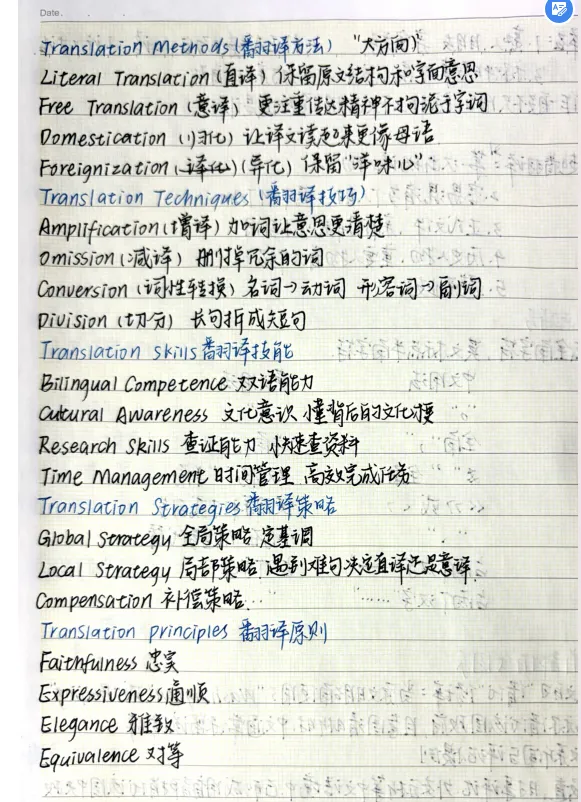 Date.
Translation Methods (翻译方法) "大方向"
Literal Translation (直译) 保留原文结构和字面意思
Free Translation (意译) 更注重传达精神不拘泥于字词
Domestication (归化) 让译文读起来更像母语
Foreignization (异化) 保留"洋味儿"
Translation Techniques (翻译技巧)
Amplification (增译) 加词让意思更清楚
Omission (减译) 删掉冗余的词
Conversion (词性转换) 名词→动词 形容词→副词
Division (切分) 长句拆成短句
Translation skills 翻译技能
Bilingual Competence 双语能力
Cultural Awareness 文化意识 懂背后的文化梗
Research Skills 查证能力 快速查资料
Time Management 时间管理 高效完成任务
Translation Strategies 翻译策略
Global Strategy 全局策略 定基调
Local Strategy 局部策略 遇到难句决定直译还是意译
Compensation 补偿策略
Translation principles 翻译原则
Faithfulness 忠实
Expressiveness 通顺
Elegance 雅致
Equivalence 对等